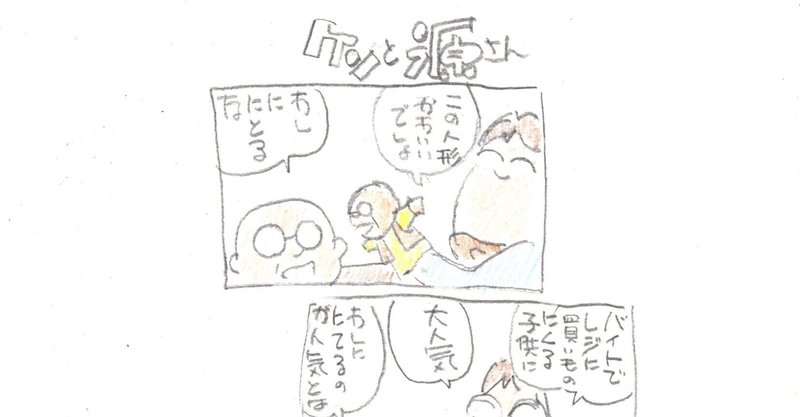 ケンと源さん
この人形
かわいい
でしょ
わし
に
にとる
な
バイトで
レジに
買いもの
にくる
子供に
大人気
わしに
にてるの
が人気とは